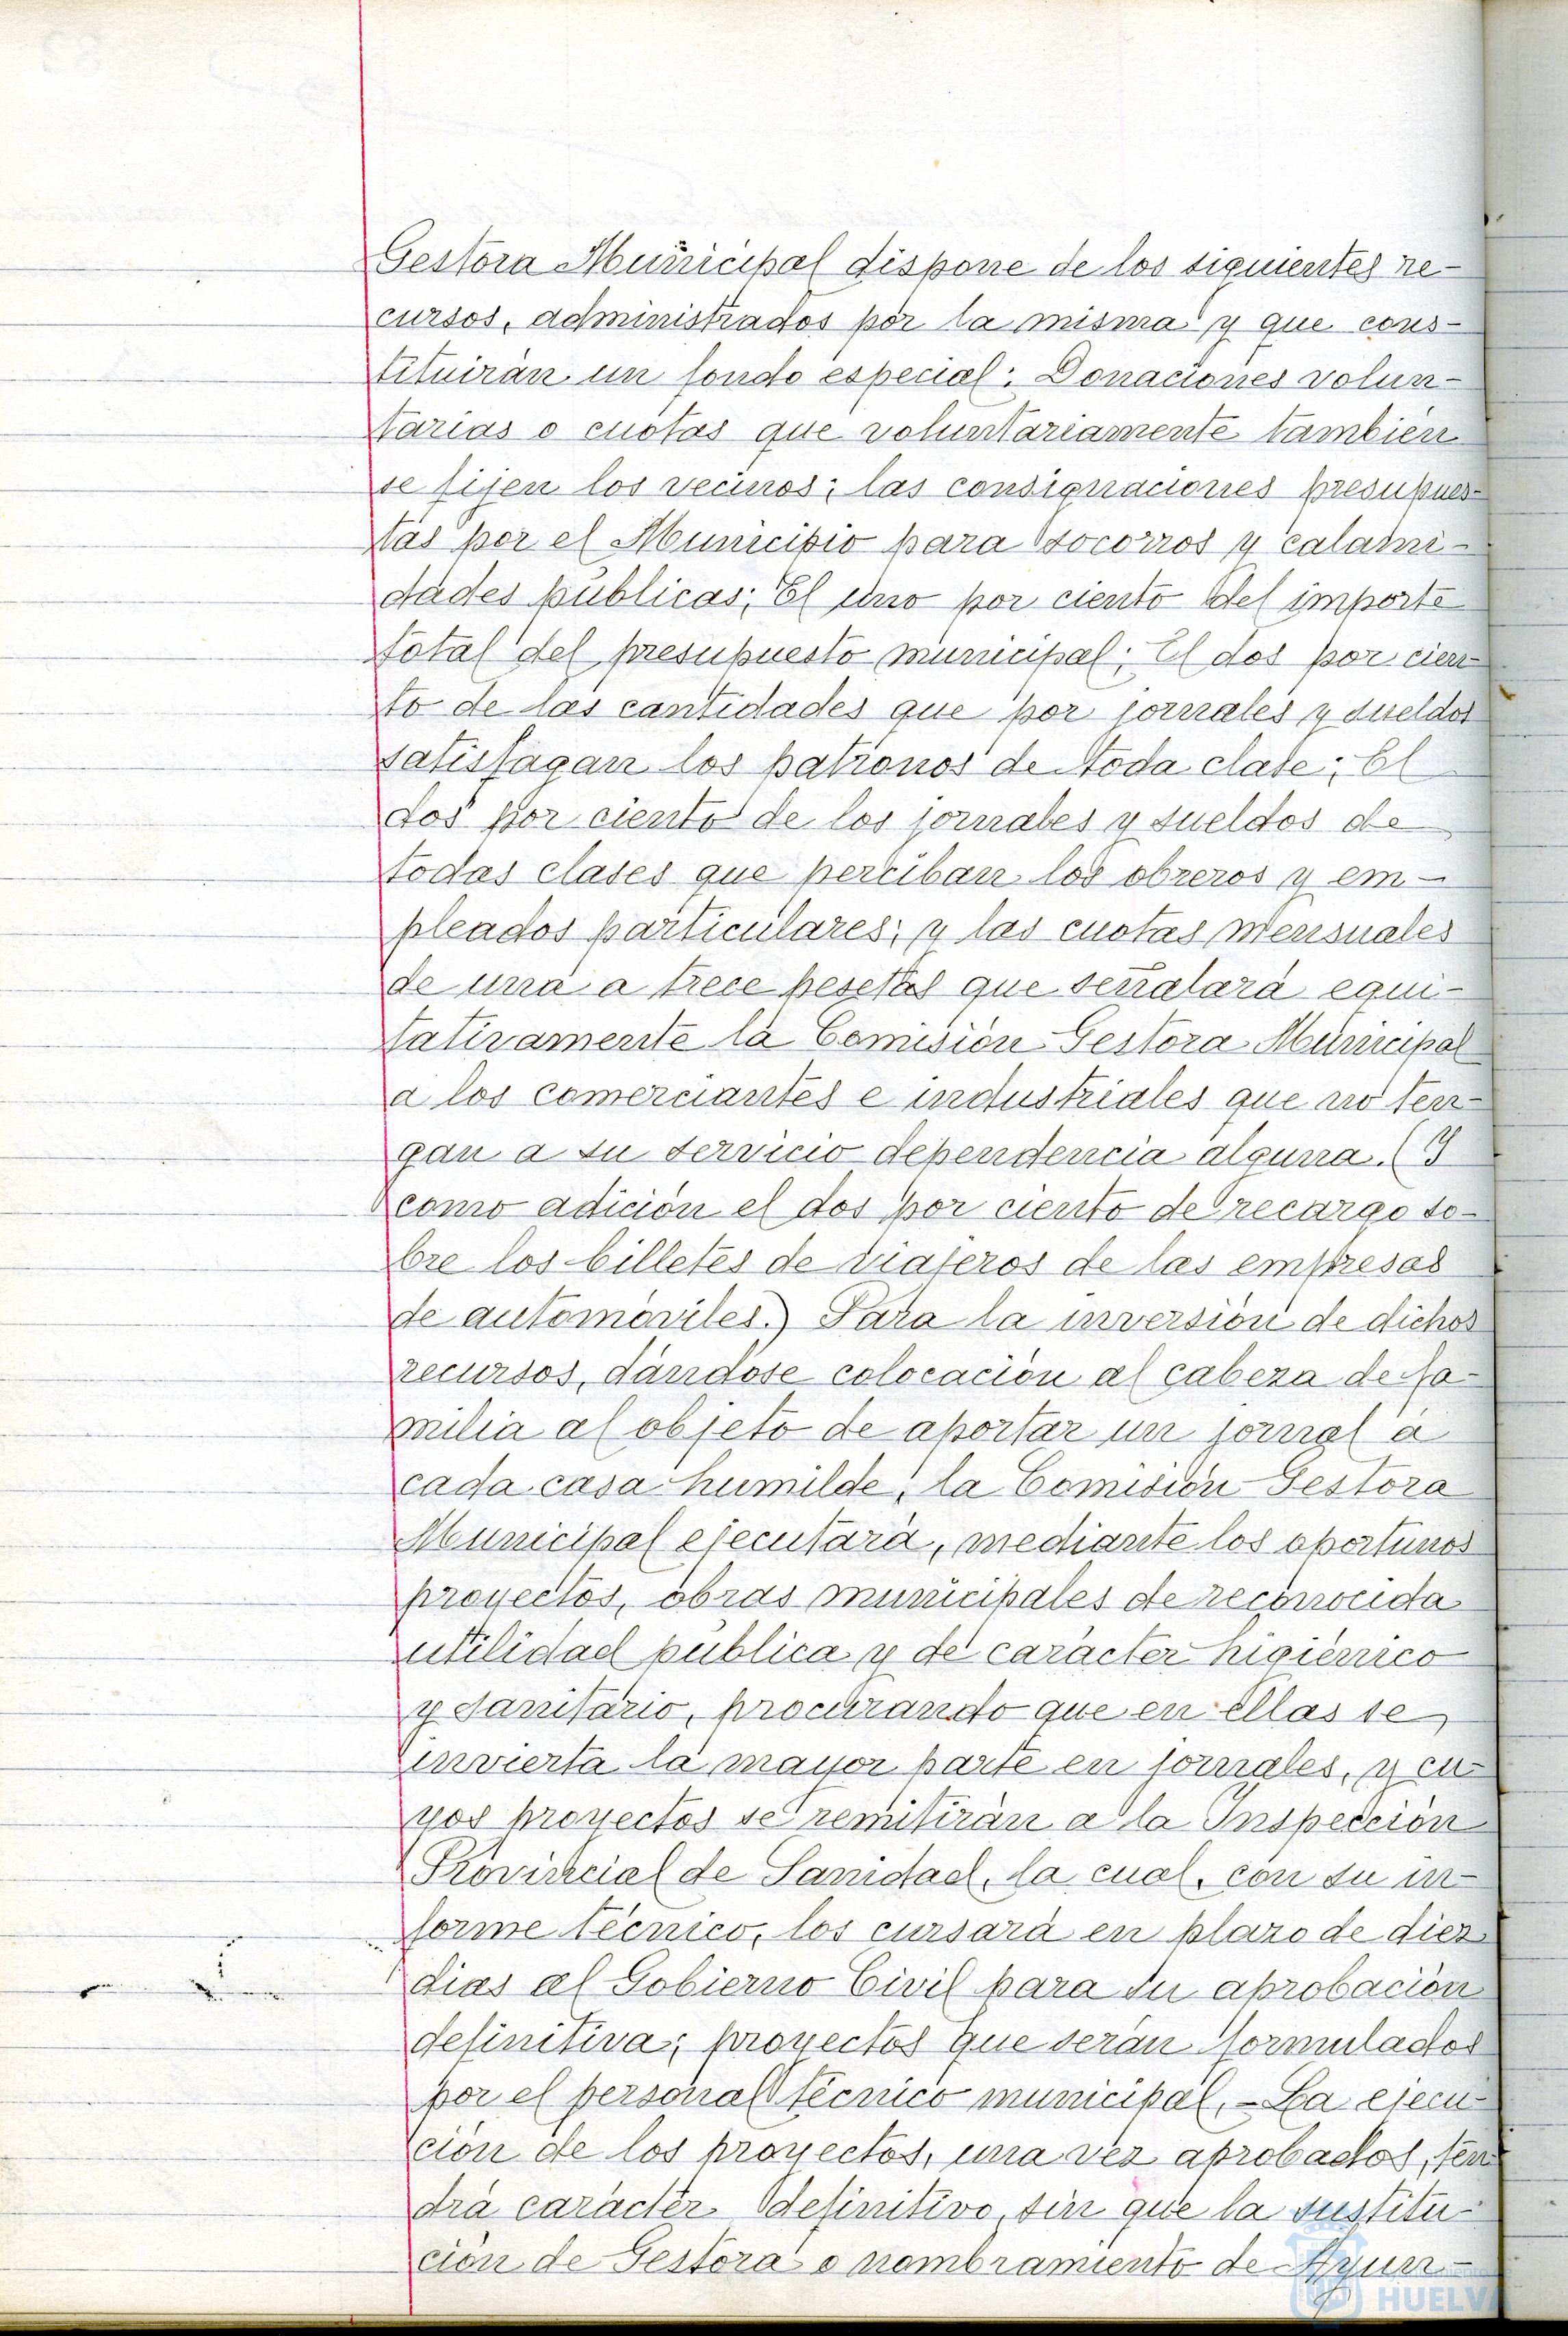 Gestora Municipal dispone de los siguientes re-
cursos, administrados por la misma y que cons-
tituirán un fondo especial: Donaciones volun-
tarias o cuotas que voluntariamente también
se fijen los vecinos; las consignaciones presupues-
tas por el Municipio para socorros y calami-
dades públicas; El uno por ciento del importe
total del presupuesto municipal; El dos por cien-
to de las cantidades que por jornales y sueldos
satisfagan los patronos de toda clase; El
dos por ciento de los jornales y sueldos de
todas clases que perciban los obreros y em-
pleados particulares; y las cuotas mensuales
de una a trece pesetas que señalará equi-
tativamente la Comisión Gestora Municipal
a los comerciantes e industriales que no ten-
gan a su servicio dependencia alguna. (Y
como adición el dos por ciento de recargo so-
bre los billetes de viajeros de las empresas
de automóviles.) Para la inversión de dichos
recursos, dándose colocación al cabeza de fa-
milia al objeto de aportar un jornal a
cada casa humilde, la Comisión Gestora
Municipal ejecutará, mediante los oportunos
proyectos, obras municipales de reconocida
utilidad pública y de carácter higiénico
y sanitario, procurando que en ellas se
invierta la mayor parte en jornales, y cu-
yos proyectos se remitirán a la Inspección
Provincial de Sanidad, la cual, con su in-
forme técnico, los cursará en plazo de diez
dias al Gobierno Civil para su aprobación
definitiva; proyectos que serán formulados
por el personal técnico municipal.- La ejecu-
ción de los proyectos, una vez aprobados, ten
drá carácter definitivo, sin que la sustitu-
ción de Gestora o nombramiento de Ayun-
HUELVA